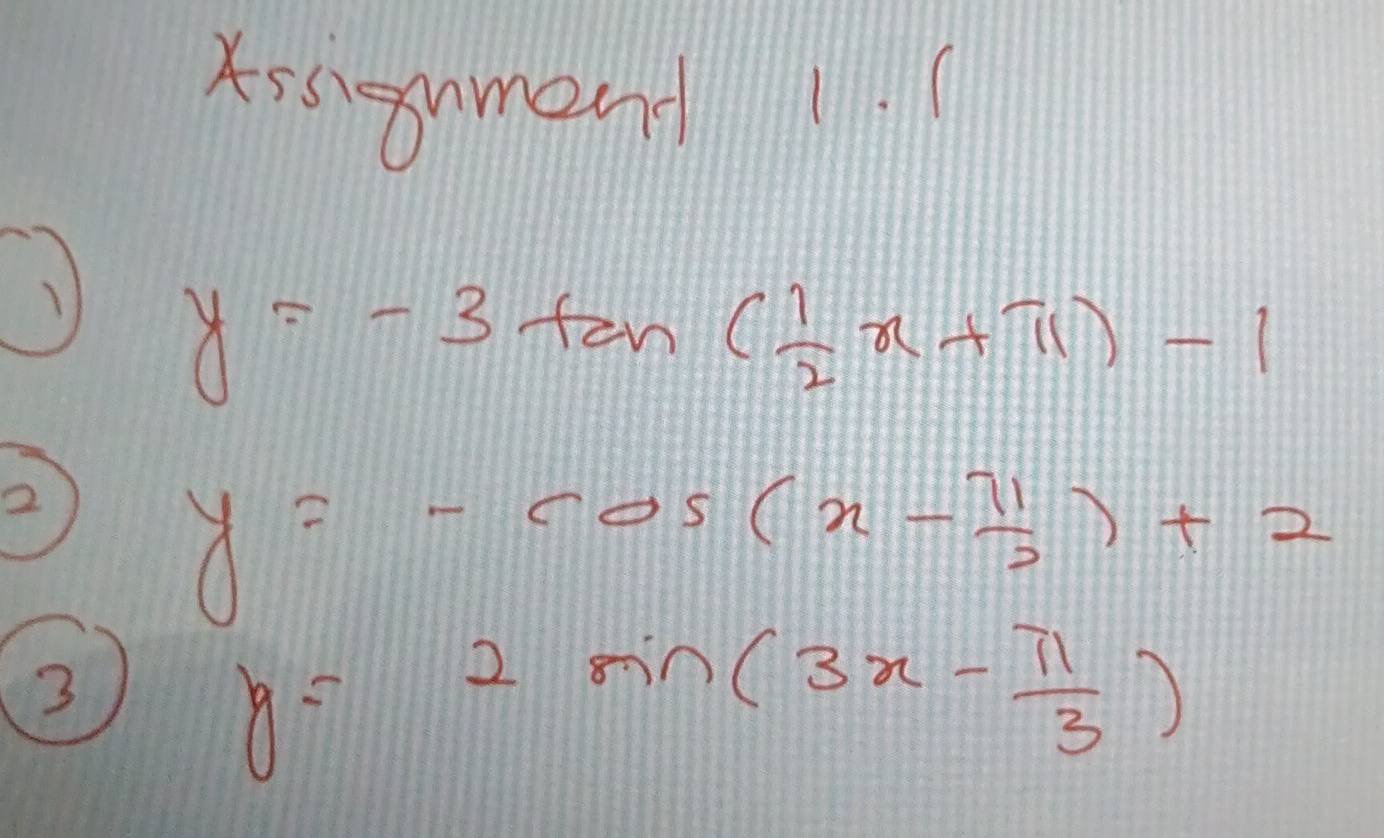 Assignment 1.1
① y = -3 tan (1/2 x + π) - 1
② y = - cos (x - π/2) + 2
③ y = 2 sin (3x - π/3)